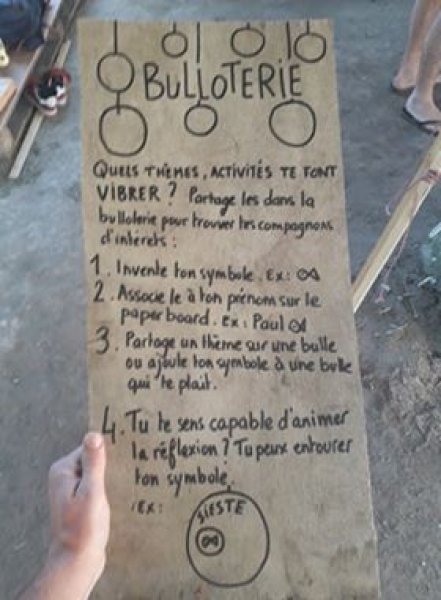 BULLOTERIE
QUELS THÈMES, ACTIVITÉS TE FONT
VIBRER ? Partage les dans la
bulloterie pour trouver tes compagnons
d'intérêts :
1. Invente ton symbole. Ex :
2. Associe le à ton prénom sur le
paperboard. Ex : Paul
3. Partage un thème sur une bulle
ou ajoute ton symbole à une bulle
qui te plait.
4. Tu te sens capable d'animer
la réflexion ? Tu peux entourer
ton symbole.
Ex :
SIESTE